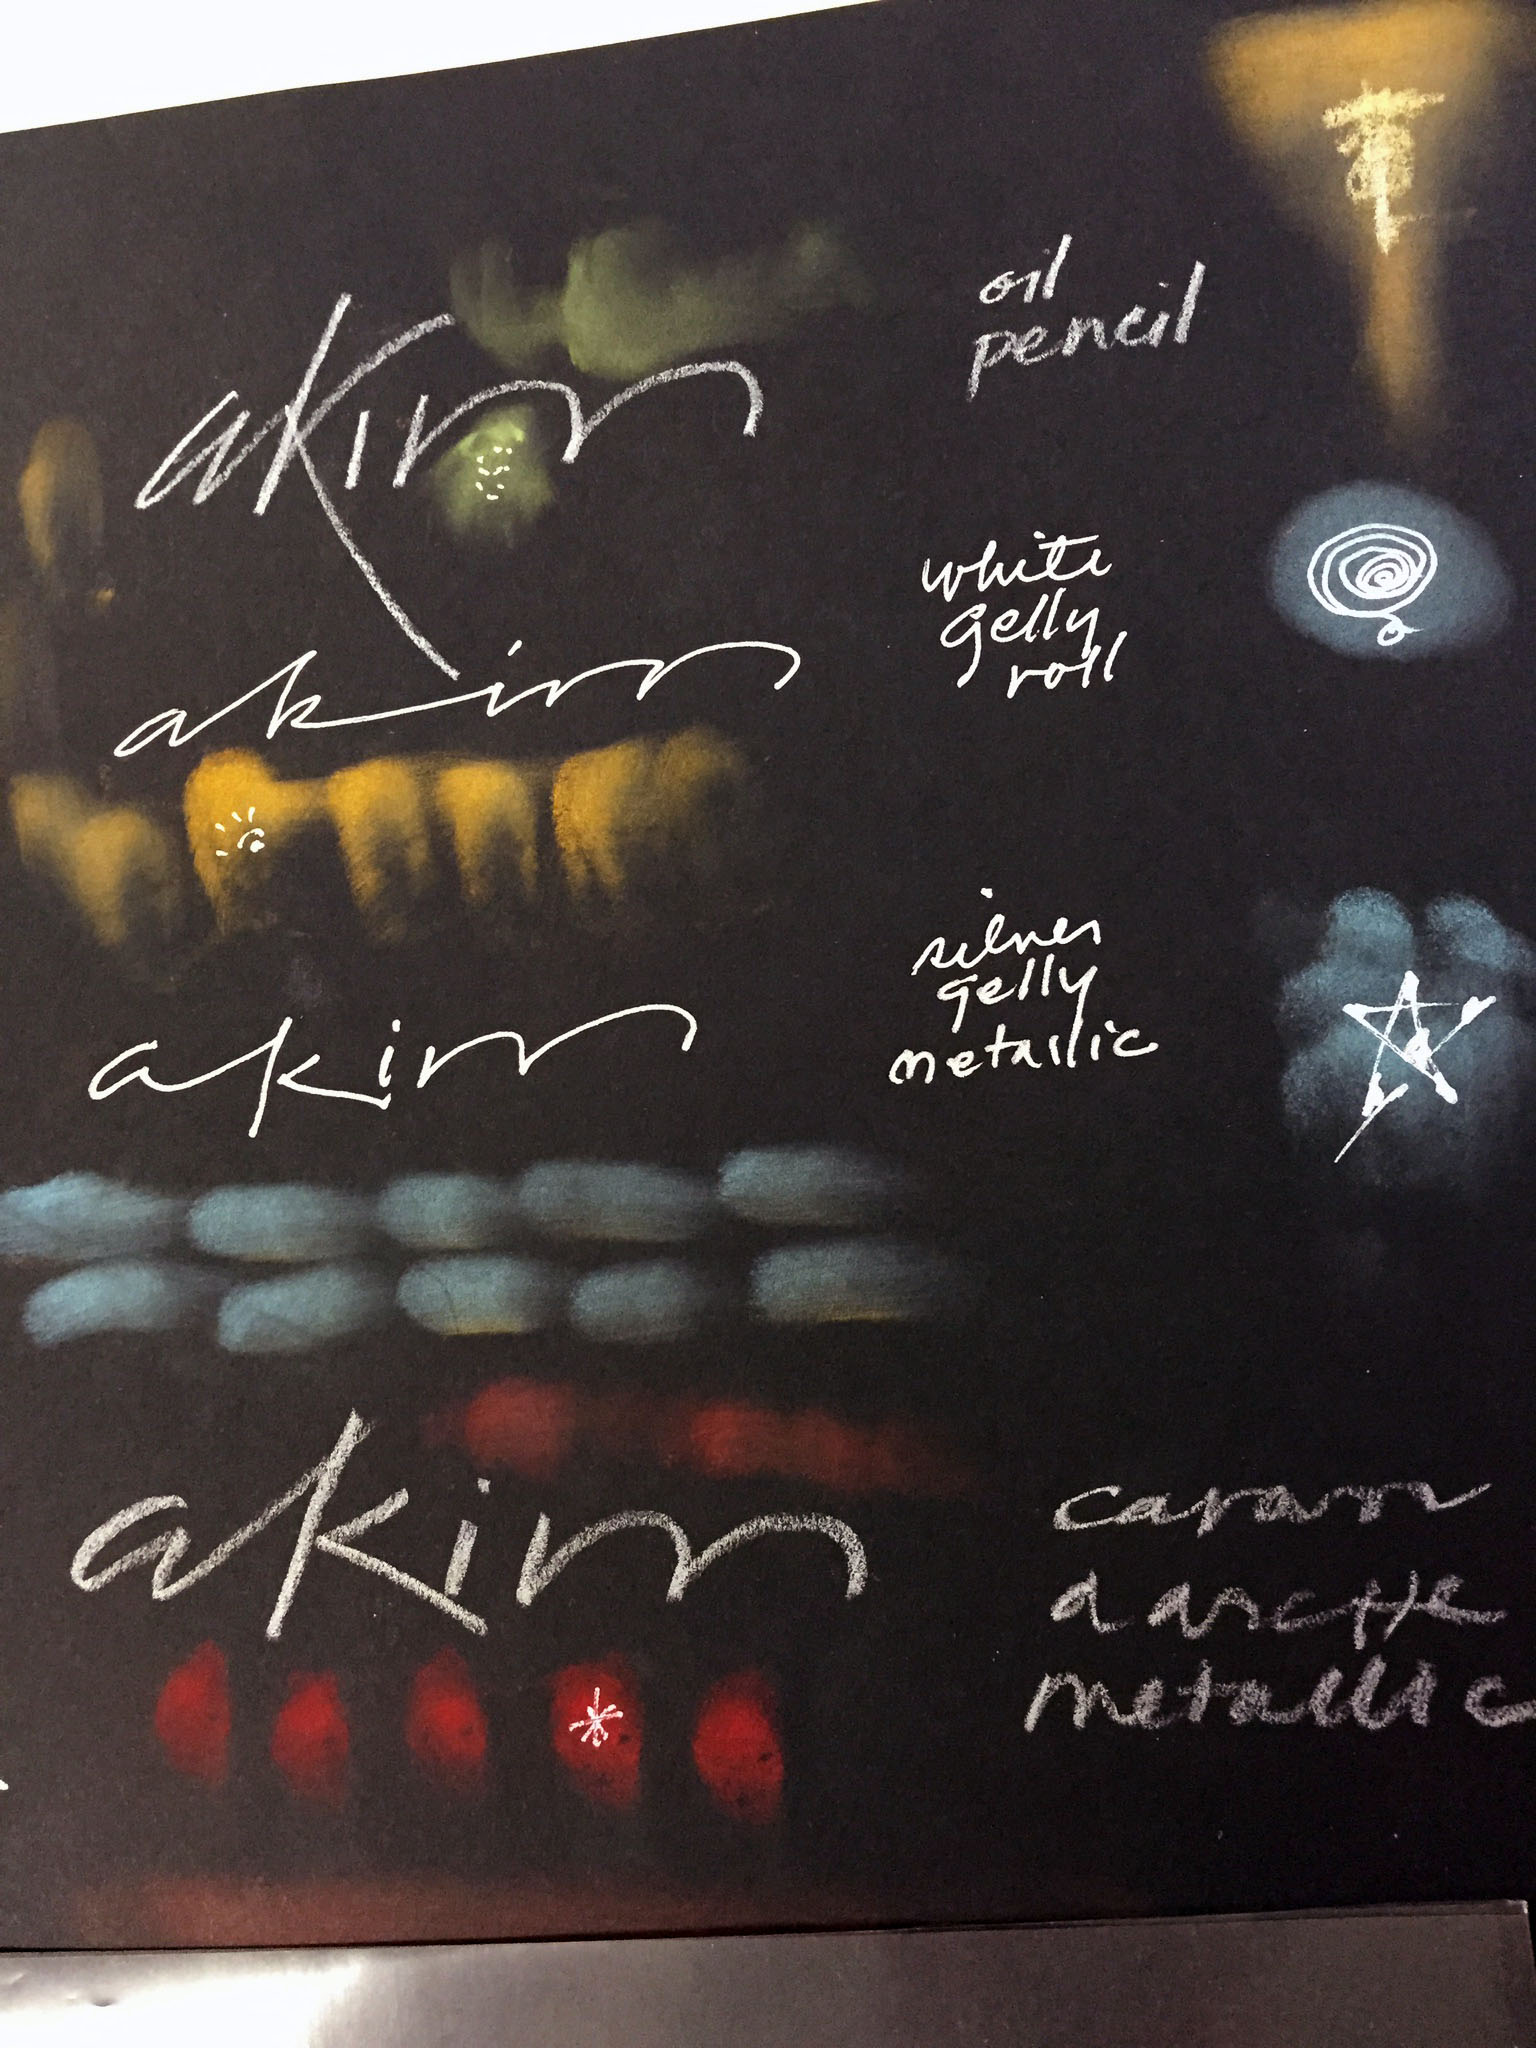 akim
oil
pencil
white
gelly
roll
akim
silver
gelly
metallic
akim
akim
caran
metallic